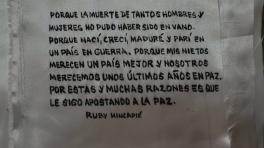 PORQUE LA MUERTE DE TANTOS HOMBRES Y
MUJERES NO PUDO HABER SIDO EN VANO.
PORQUE NACÍ, CRECÍ, MADURÉ Y PARÍ EN
UN PAÍS EN GUERRA. PORQUE MIS NIETOS
MERECEN UN PAÍS MEJOR Y NOSOTROS
MERECEMOS UNOS ÚLTIMOS AÑOS EN PAZ.
POR ESTAS Y MUCHAS RAZONES ES QUE
LE SIGO APOSTANDO A LA PAZ.
RUBY HINCAPIÉ